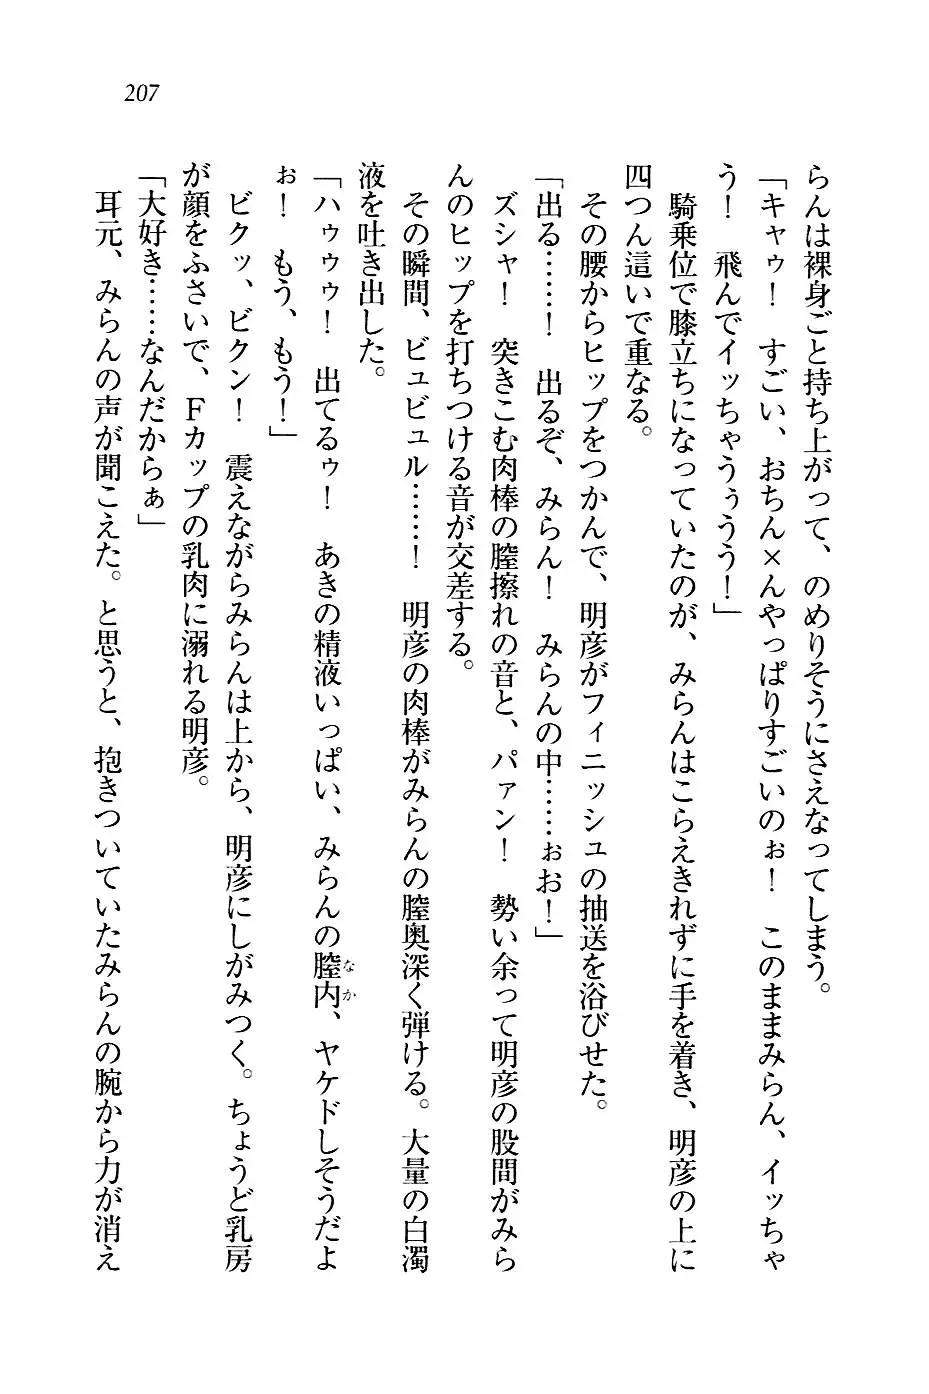 207
らんは裸身ごと持ち上がって、のめりそうにさえなってしまう。
「キャゥ！　すごい、おちん×んやっぱりすごいのぉ！　このままみらん、イッちゃ
う！　飛んでイッちゃうぅうう！」
　騎乗位で膝立ちになっていたのが、みらんはこらえきれずに手を着き、明彦の上に
四つん這いで重なる。
　その腰からヒップをつかんで、明彦がフィニッシュの抽送を浴びせた。
「出る……！　出るぞ、みらん！　みらんの中……ぉお！」
　ズシャ！　突きこむ肉棒の膣擦れの音と、パァン！　勢い余って明彦の股間がみら
んのヒップを打ちつける音が交差する。
　その瞬間、ビュビュル……！　明彦の肉棒がみらんの膣奥深く弾ける。大量の白濁
液を吐き出した。
「ハゥゥゥ！　出てるゥ！　あきの精液いっぱい、みらんの膣内、ヤケドしそうだよ
なか
ぉ！　もう、もう！」
　ビクッ、ビクン！　震えながらみらんは上から、明彦にしがみつく。ちょうど乳房
が顔をふさいで、Ｆカップの乳肉に溺れる明彦。
「大好き……なんだからぁ」
　耳元、みらんの声が聞こえた。と思うと、抱きついていたみらんの腕から力が消え